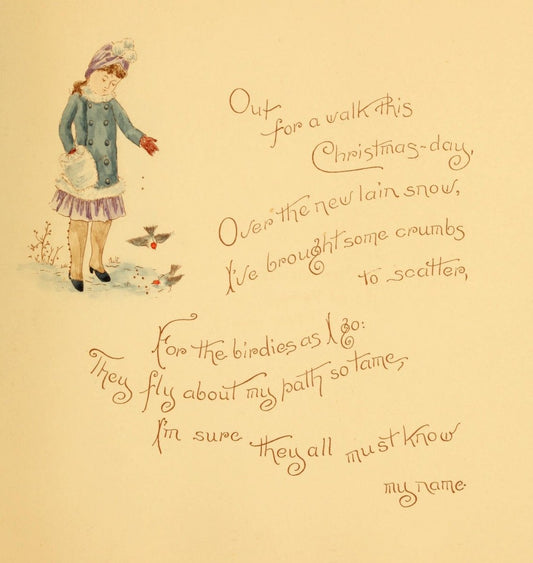 Out
for a walk this
Christmas-day,
Over the new lain snow,
I've brought some crumbs
to scatter,
For the birdies as I go:
They fly about my path so tame,
I'm sure they all must know
my name.